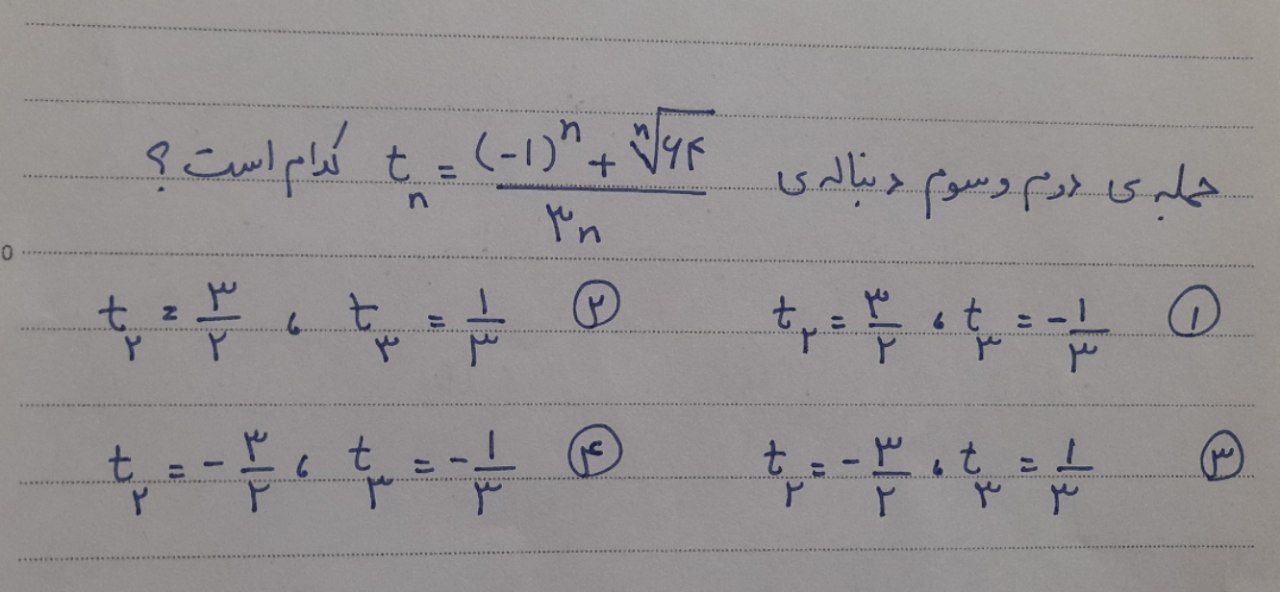 جمله ی دوم و سوم دنباله ی tₙ = ((-1)ⁿ + ⁿ√۶۴) / ۳n کدام است ؟
① t₂ = ۳/۲ ، t₃ = -۱/۳ ② t₂ = ۳/۲ ، t₃ = ۱/۳
③ t₂ = -۳/۲ ، t₃ = ۱/۳ ④ t₂ = -۳/۲ ، t₃ = -۱/۳